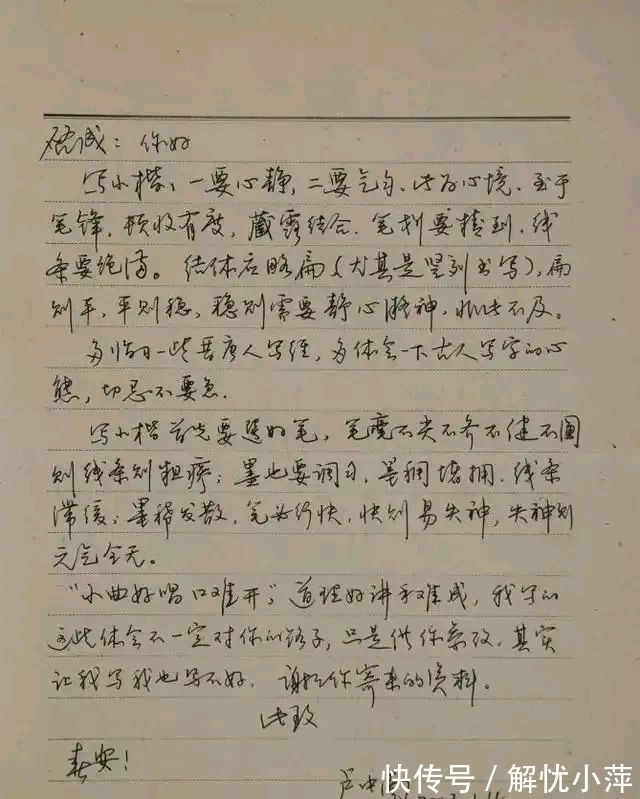 诚：你好
写小楷，一要心静，二要气匀，此为心境，至于
笔锋，顿收有度，藏露结合，笔划要精到，线
条要饱满。结体应略扁（尤其是竖列书写），扁
则平，平则稳，稳则需要静心凝神，非此不及。
多临习一些晋唐人写经，多体会一下古人写字的心
态，切忌不要急。
写小楷首先要选好笔，笔度不尖不齐不健不圆
则线条则粗疏；墨也要调匀，墨稠堵拥，线条
滞缓；墨稀发散，笔必行快，快则易失神，失神则
元气全无。
“小曲好唱口难开”，道理好讲手难成，我写的
这些体会不一定对你的路子，只是供你参考，其实
让我写我也写不好，谢谢你寄来的资料。
此致
春安！
卢中
快传号／解忧小萍